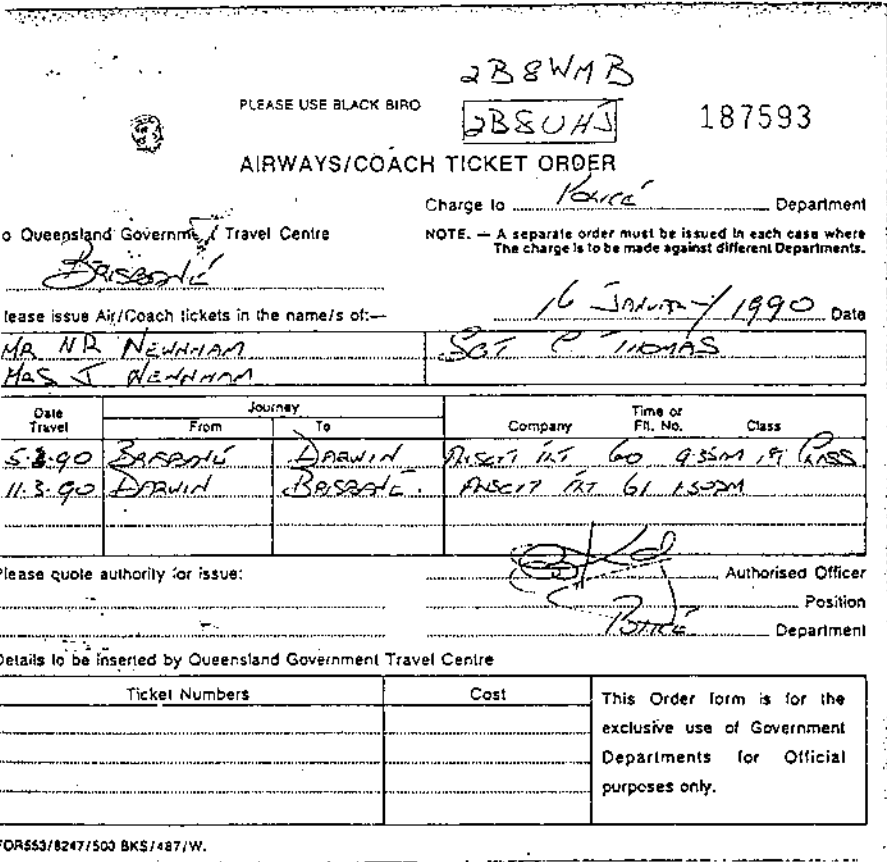 2B8WMB
PLEASE USE BLACK BIRO 2B8UHJ 187593
AIRWAYS/COACH TICKET ORDER
Charge to Police Department
o Queensland Government Travel Centre
NOTE. — A separate order must be issued in each case where
The charge is to be made against different Departments.
BRISBANE
lease issue Air/Coach tickets in the name/s of:—
16 JANUARY 1990 Date
MR NR NEWNHAM SGT C THOMAS
MRS J NEWNHAM
Date Travel Journey From To Company Time or Flt. No. Class
5.3.90 BRISBANE DARWIN ANSETT FLT 60 9.35AM 1ST CLASS
11.3.90 DARWIN BRISBANE. ANSETT FLT 61 1.50PM
Please quote authority for issue:
Authorised Officer
Position
POLICE Department
Details to be inserted by Queensland Government Travel Centre
Ticket Numbers Cost
This Order form is for the
exclusive use of Government
Departments for Official
purposes only.
FOR553/8247/500 BKS/487/W.